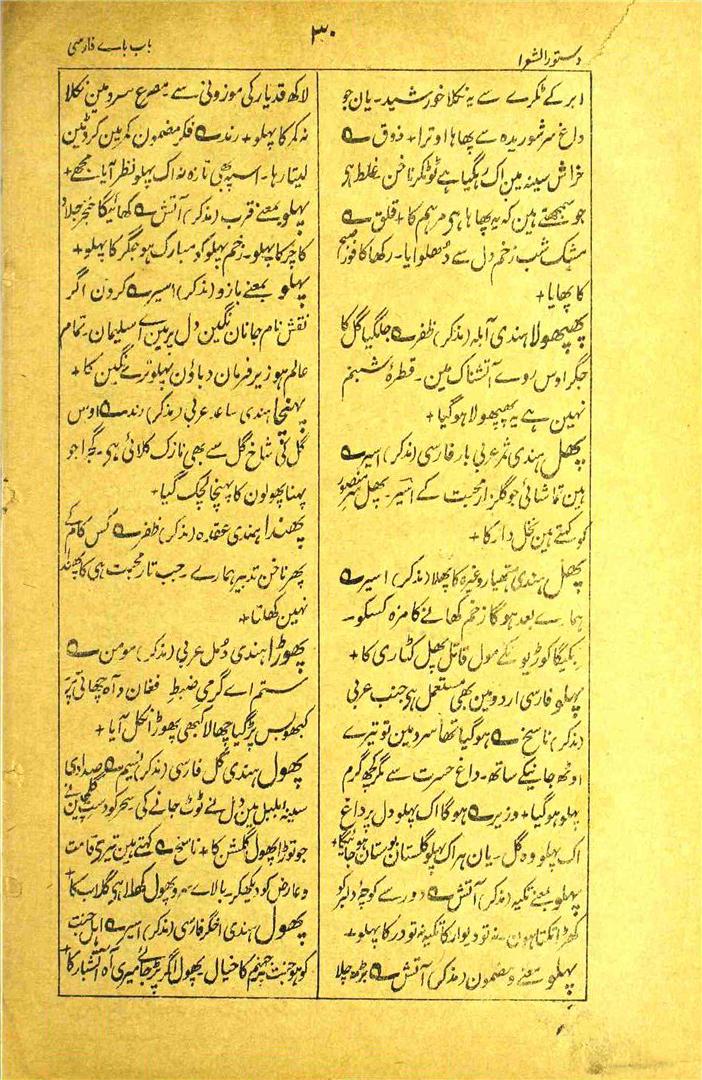 دستور الشعرا
۳۰
باب باے فارسی
ابر کے ٹکرے سے یہ نکلا خورشید۔ یان جو
داغ سر شوریدہ سے پھاہا اوترا + ذوق ؎
خراش سینہ مین اک رہگیا ہے ٹوٹکر ناخن۔ غلط ہی
جو سمجھتے ہین کہ یہ پھاہا ہی مرہم کا + قلق ؎
مشک شب زخم دل سے دھلوایا۔ رکھا کافور صبح
کا پھایا +
پھپھولا ہندی آبلہ (مذکر) ظفر ؎ جلگیا گل کا
جگر اوس روے آتشناک مین۔ قطرۂ شبنم
نہین ہے یہ پھپھولا ہوگیا +
پھل ہندی ثمر عربی بار فارسی (مذکر) اسیر ؎
ہین تماشائی جو گلزار محبت کے اسیر۔ پھل سر منصور
کو کہتے ہین نخل دار کا +
پھل ہندی ہتھیار وغیرہ کا پھلا (مذکر) اسیر ؎
ہمارے بعد ہوگا زخم کھانے کا مزہ کسکو۔
بکیگا کوڑیونکے مول قاتل پھل کٹاری کا +
پہلو فارسی اردو مین بھی مستعمل ہی جنب عربی
(مذکر) ناسخ ؎ ہوگیا تھا سرد مین تو تیرے
اوٹھ جانیکے ساتھ۔ داغ حسرت سے مگر کچھ گرم
پہلو ہوگیا + وزیر ؎ ہوگا اک پہلو دل پر داغ
اک پہلو وہ گل۔ یان ہر اک پہلو گلستان بوستان ہو جائیگا +
پہلو بمعنے تکیہ (مذکر) آتش ؎ دور سے کوچۂ دلبر کو
کھڑا تکتا ہون۔ نہ تو دیوار کا تکیہ نہ تو در کا پہلو +
پہلو بمعنے و مضمون (مذکر) آتش ؎ بڑھ چلا
لاکھ قد یار کی موزونی سے۔ مصرع سرو مین نکلا
نہ کمر کا پہلو + رند ؎ فکر مضمون کمر مین کروٹین
لیتا رہا۔ اسپہ بھی تازہ نہ اک پہلو نظر آیا مجھے +
پہلو بمعنے قرب (مذکر) آتش ؎ کھائیگا خنجر جلاد
کا چرکا پہلو۔ زخم پہلو کو مبارک ہو جگر کا پہلو +
پہلو بمعنے بازو (مذکر) اسیر ؎ کردن اگر
نقش نام جانان نگین دل پر مین اے سلیمان۔ تمام
عالم ہو زیر فرمان دباؤن پہلو ترے نگین کا +
پہنچا ہندی ساعد عربی (مذکر) رند ؎ اوس
گل کی شاخ گل سے بھی نازک کلائی ہی۔ گجرا جو
پہنا پھولون کا پہنچا لچک گیا +
پھندا ہندی عقدہ (مذکر) ظفر ؎ کس کام کے
پھر ناخن تدبیر ہمارے۔ جب تار محبت ہی کا پھندا
نہین کھلتا +
پھوڑا ہندی دمل عربی (مذکر) مومن ؎
ستم اے گرمی ضبط فغان و آہ چھاتی پر
کبھو بس پڑ گیا چھالا کبھی پھوڑا نکل آیا +
پھول ہندی گل فارسی (مذکر) نسیم ؎ صدا دی
سینۂ بلبل مین دل نے ٹوٹ جانے کی سحر کو دست گلچین نے
جو توڑا پھول گلشن کا + ناسخ ؎ کہتے ہین تیری قامت
و عارض کو دیکھکر۔ بالاے سرو پھول کھلا ہی گلاب کا +
پھول ہندی اخگر فارسی (مذکر) اسیر ؎ اہل جنت
کو ہو جنت جہنم کا خیال۔ پھول اگر پڑ جائے میری آہ آتشبار کا +